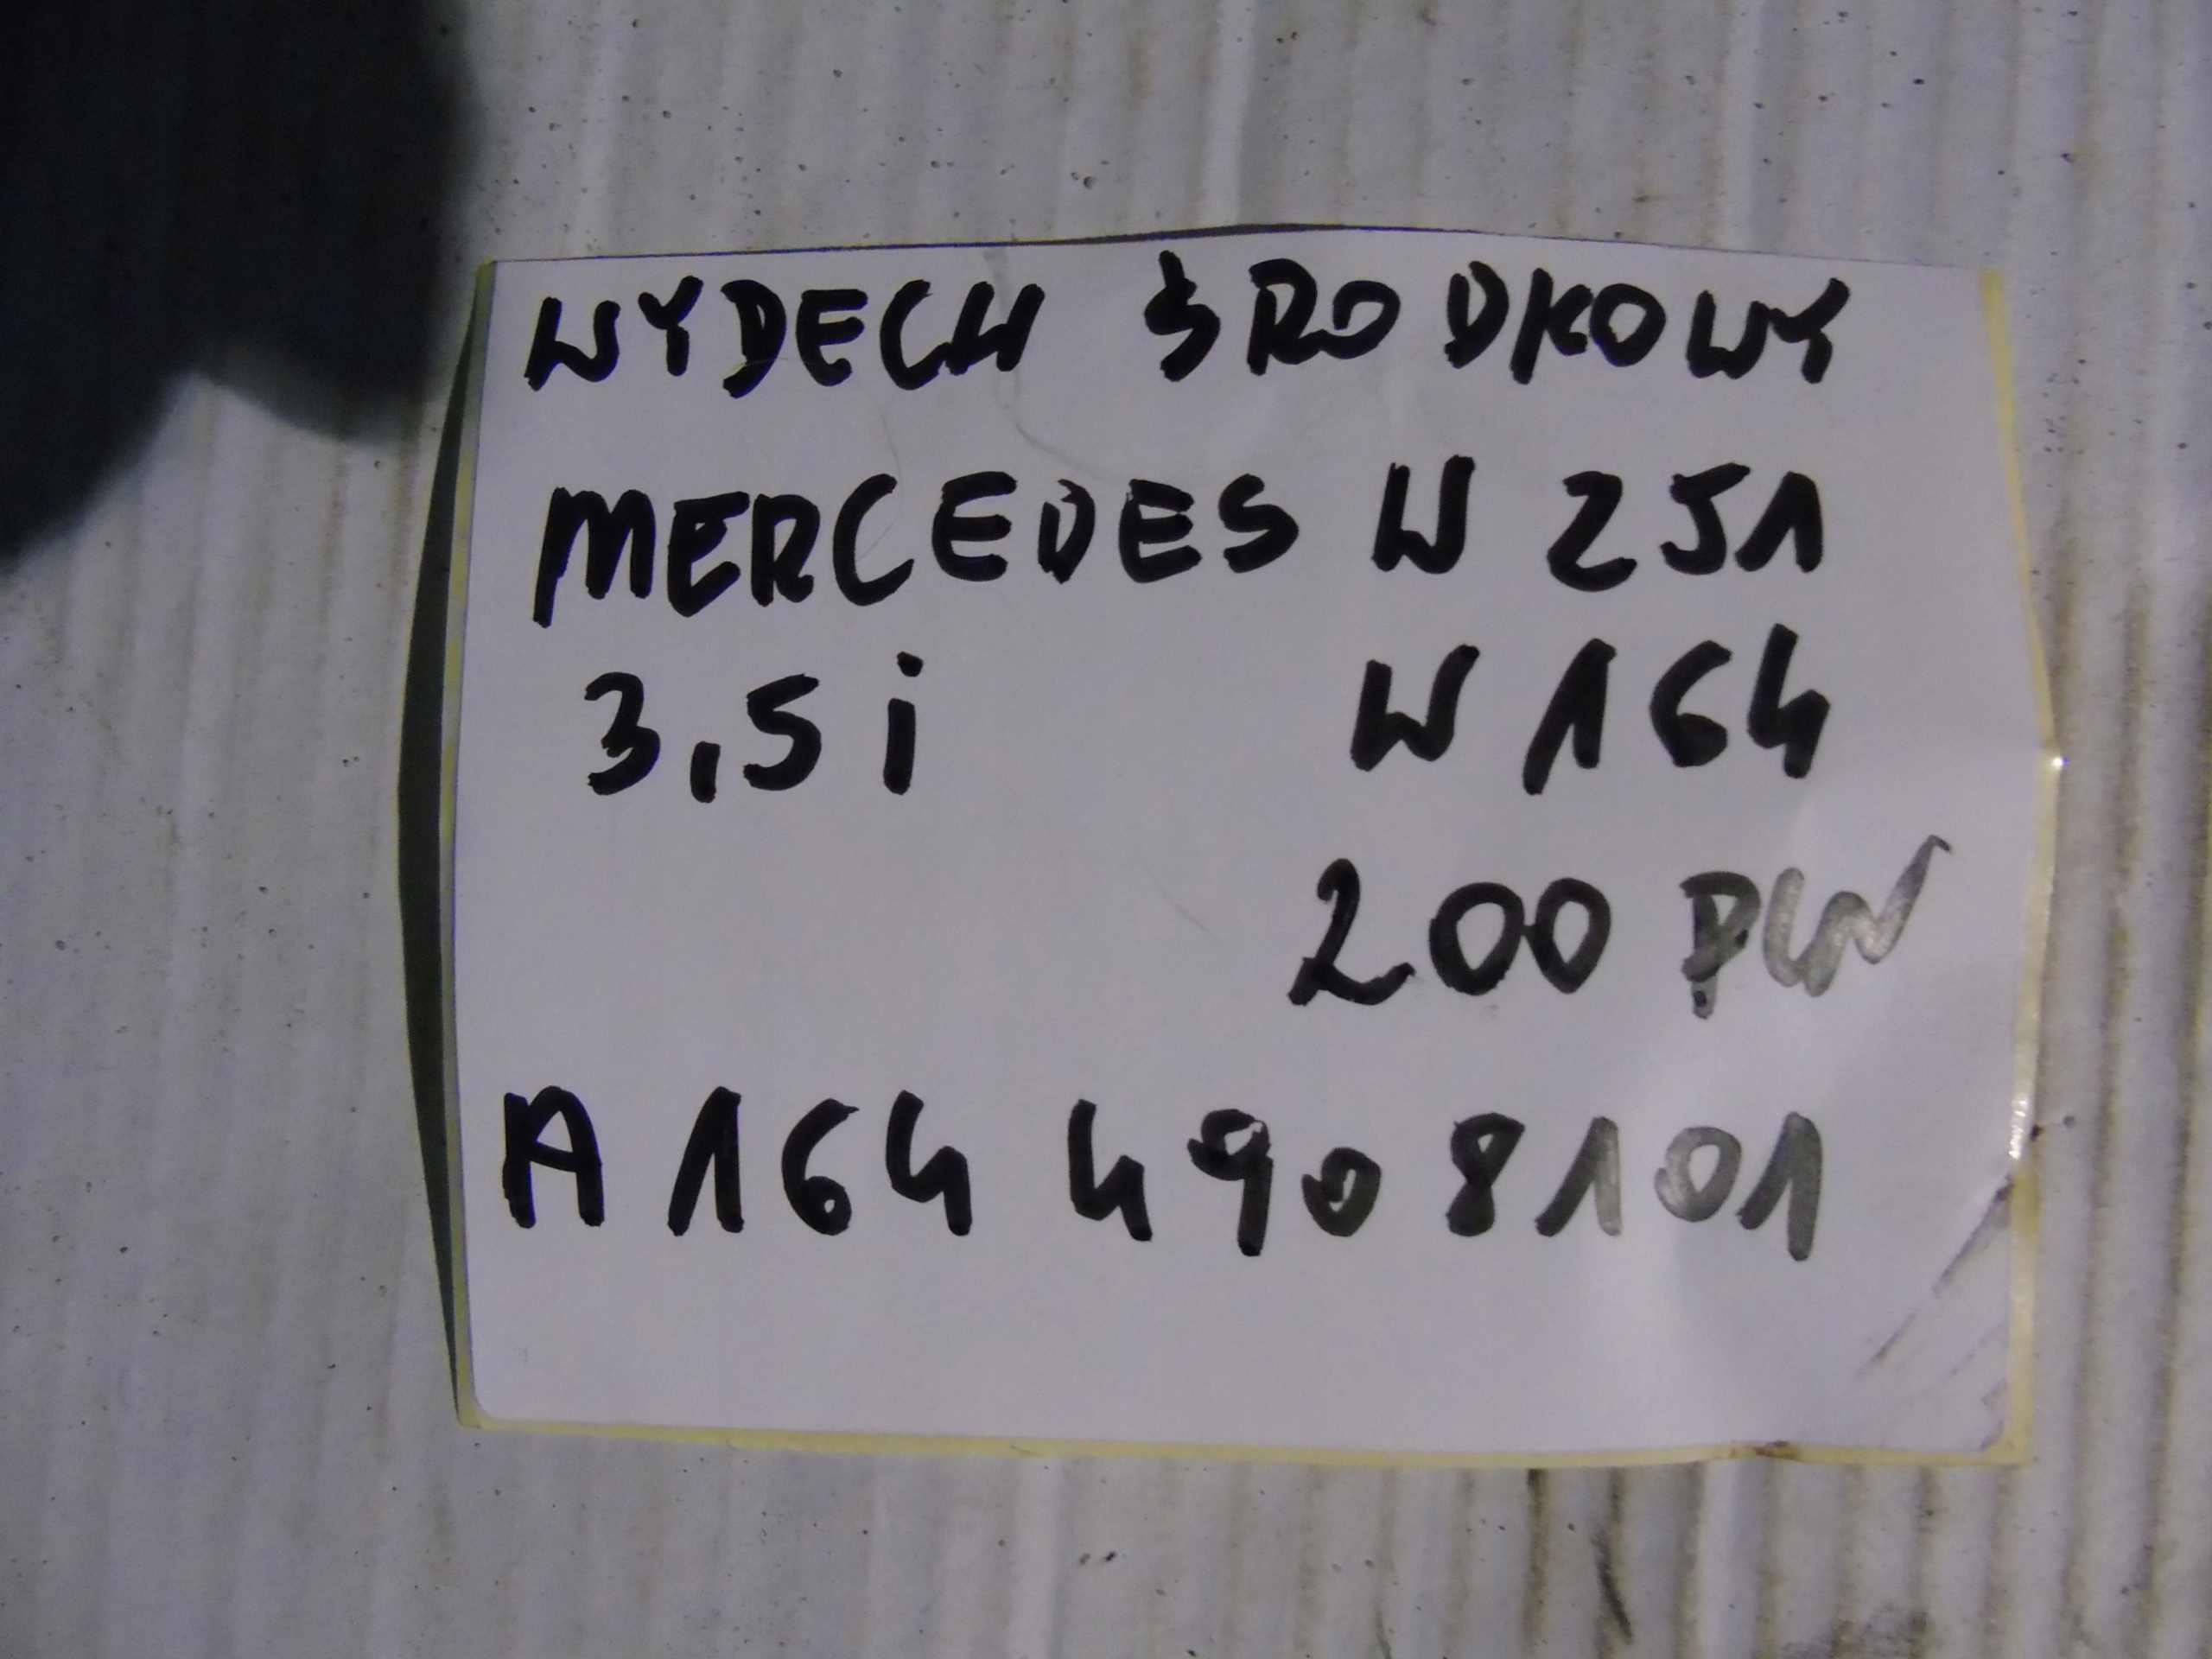 WYDECH ŚRODKOWY
MERCEDES W 251
3,5 i W 164
200 PLN
A 164 490 8101